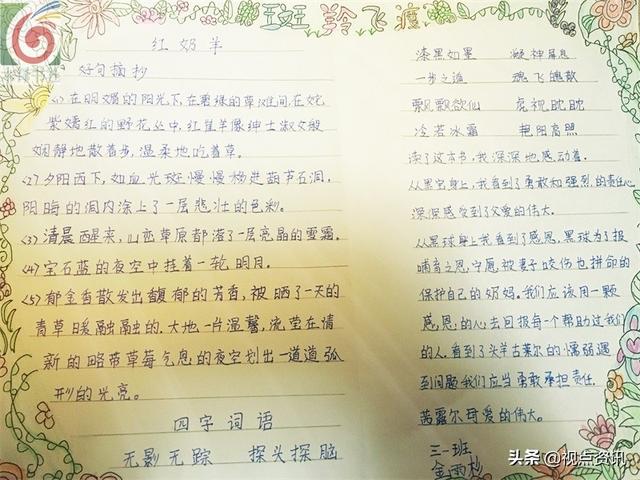 斑羚飞渡
红奶羊
好句摘抄
<1>在明媚的阳光下,在翠绿的草滩间,在姹
紫嫣红的野花丛中,红崖羊像绅士淑女般
娴静地散着步,温柔地吃着草。
<2>夕阳西下,如血光斑慢慢移进葫芦石洞,
阴晦的洞内涂上了一层悲壮的色彩。
<3>清晨醒来,山峦草原都落了一层亮晶的雪霜。
<4>宝石蓝的夜空中挂着一轮明月。
<5>郁金香散发出馥郁的芳香,被晒了一天的
青草暖融融的.大地一片温馨,流萤在清
新的略带草莓气息的夜空划出一道道弧
形的光亮。
四字词语
无影无踪 探头探脑
漆黑如墨 凝神屏息
一步之遥 魂飞魄散
飘飘欲仙 虎视眈眈
冷若冰霜 艳阳高照
读了这本书,我深深地感动着.
从黑宝身上,我看到了勇敢和强烈的责任心
深深感觉到了父爱的伟大.
从黑球身上我看到了感恩,黑球为了报
哺育之恩,宁愿被妻子咬伤也拼命的
保护自己的奶妈.我们应该用一颗
感恩的心去回报每一个帮助过我们
的人.看到了头羊古莱尔的懦弱.遇
到问题我们应当勇敢承担责任.
茜露尔母爱的伟大。
三一班
头条@视点资讯